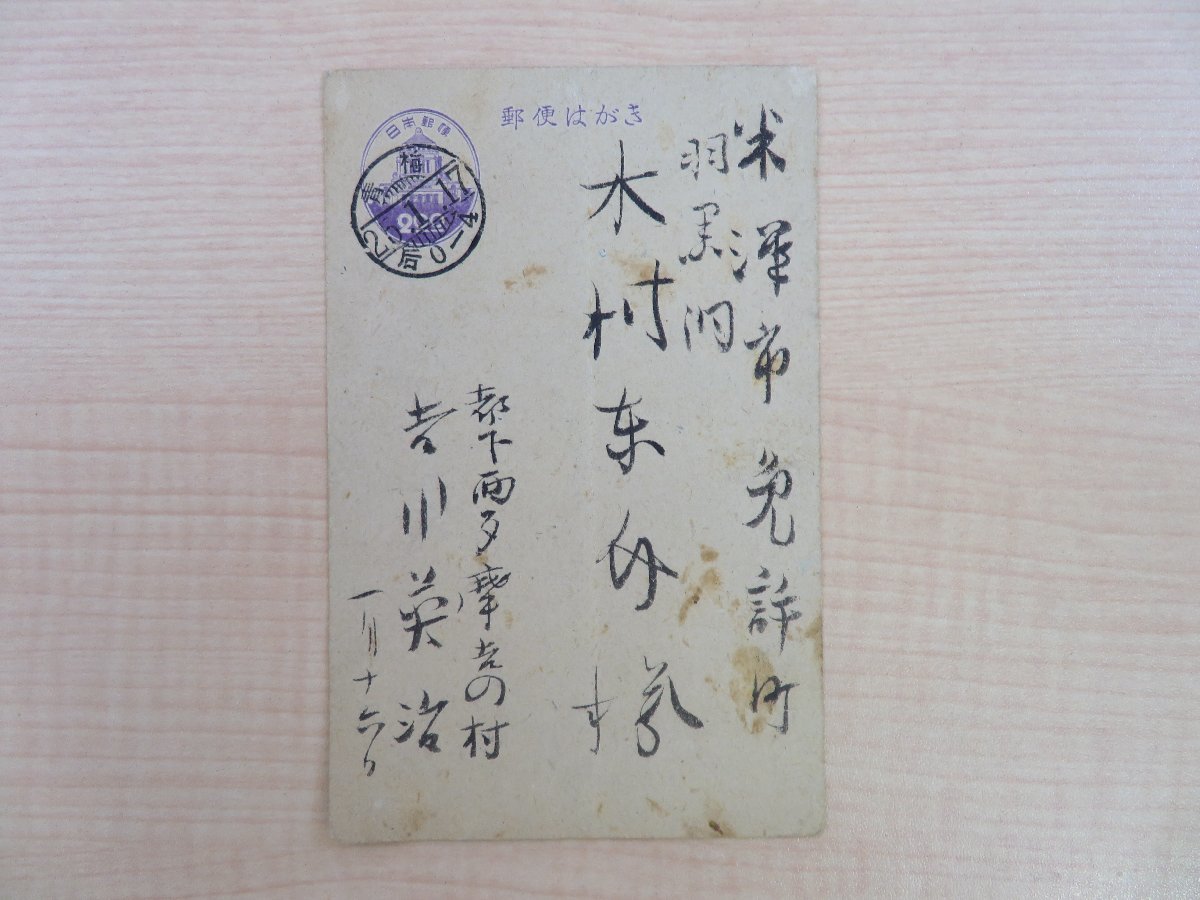 郵便はがき
日本郵便
青梅
1.17
后0-4
米澤市免許町
羽黒洞
木村东介様
都下西多摩吉の村
吉川英治
一月十六日